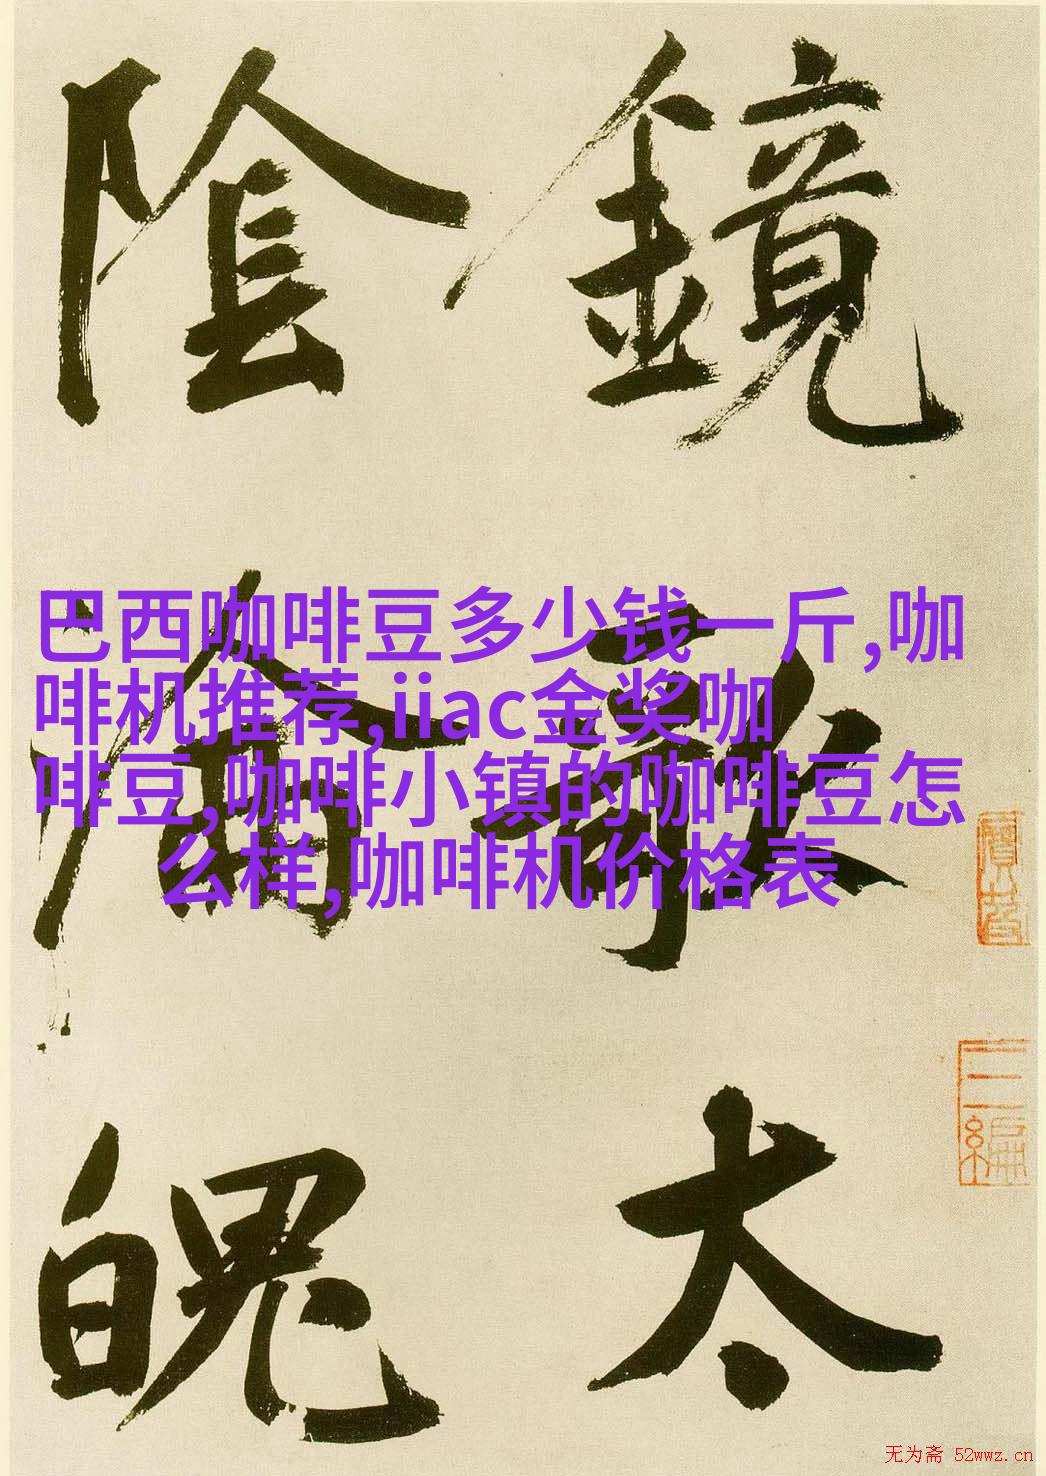 鏡
太
陰
魄
巴西咖啡豆多少钱一斤,咖
啡机推荐,iiac金奖咖
啡豆,咖啡小镇的咖啡豆怎
么样,咖啡机价格表
无为斋 52wwz.cn